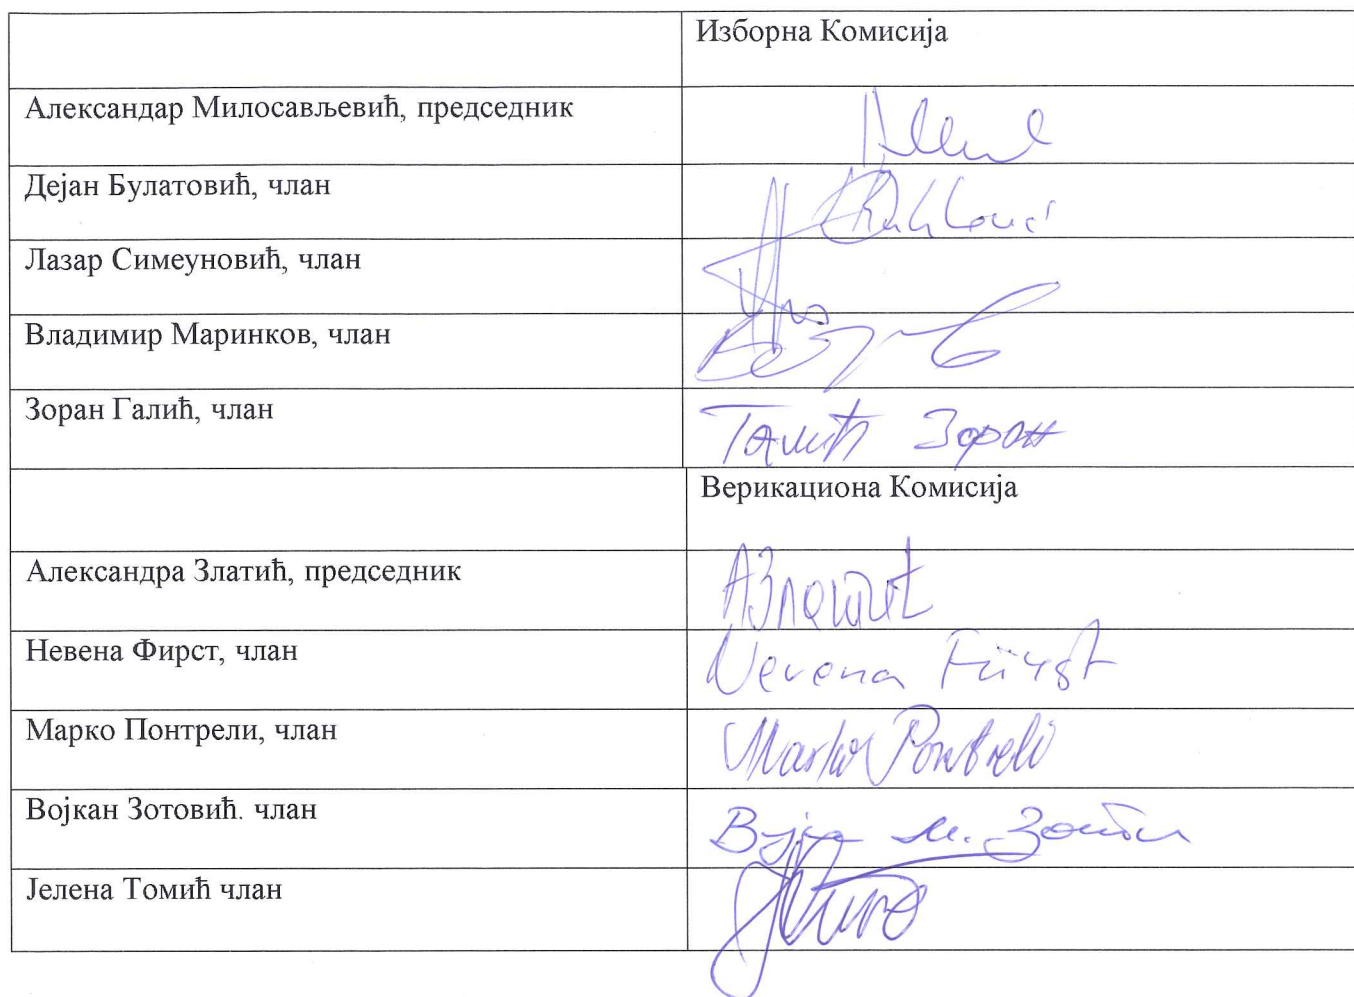 Изборна Комисија
Александар Милосављевић, председник
Дејан Булатовић, члан
Лазар Симеуновић, члан
Владимир Маринков, члан
Зоран Галић, члан
Галић Зоран
Верикациона Комисија
Александра Златић, председник
АЗлатић
Невена Фирст, члан
Nevena Fürst
Марко Понтрели, члан
Marko Pontreli
Војкан Зотовић. члан
Јелена Томић члан